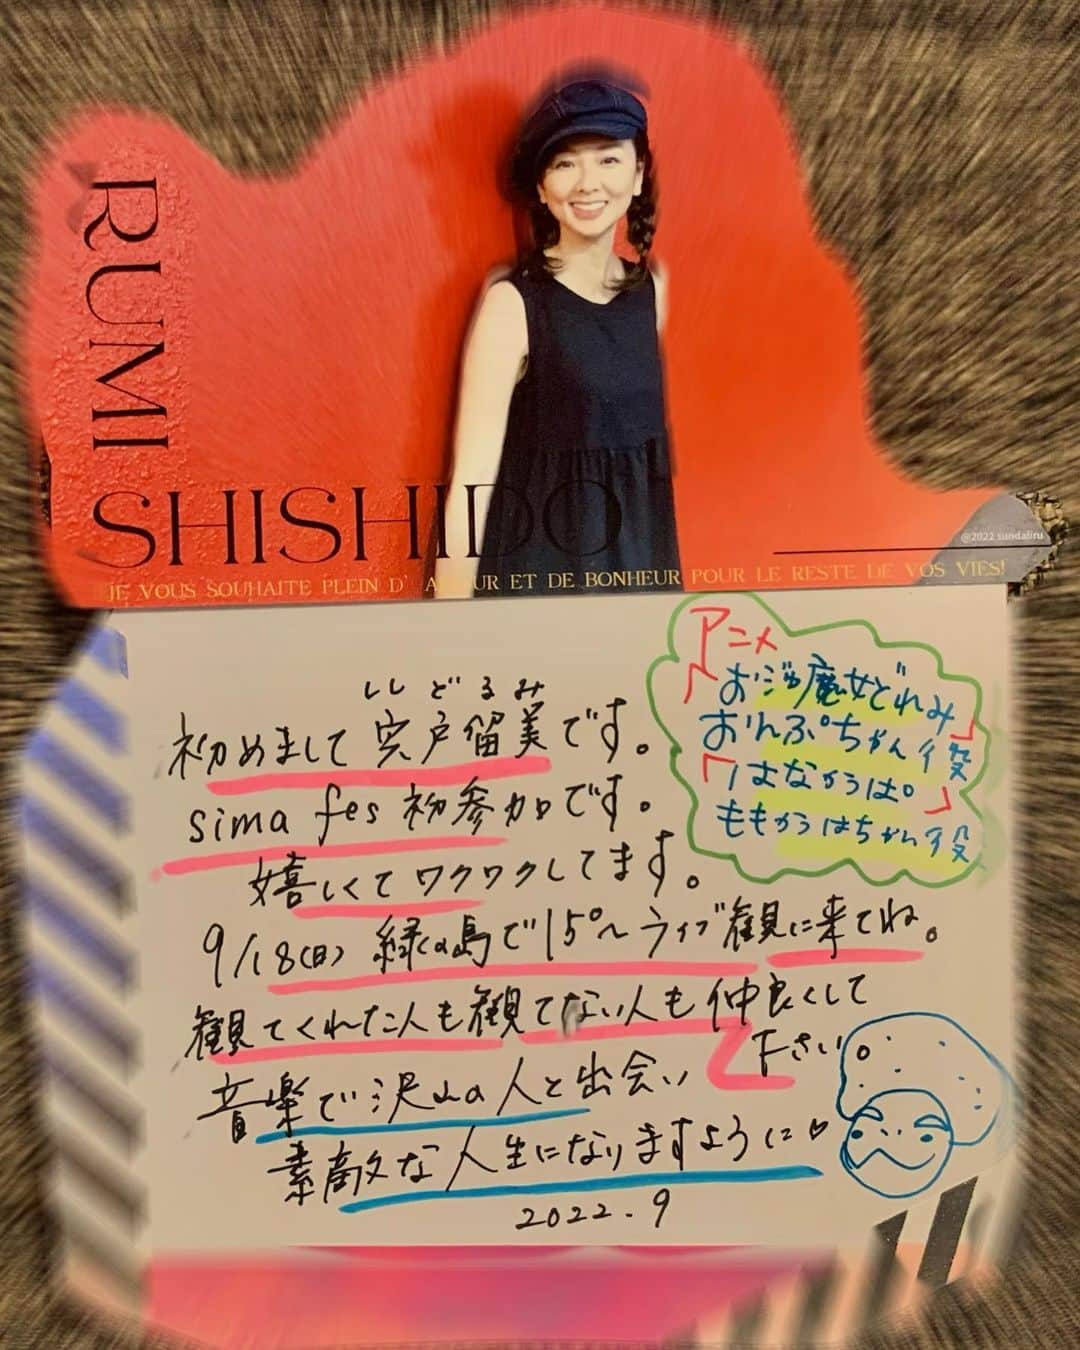 RUMI
SHISHIDO
@2022 sundaliru
JE VOUS SOUHAITE PLEIN D' AMOUR ET DE BONHEUR POUR LE RESTE DE VOS VIES!
アニメ
「おジャ魔女どれみ」
おんぷちゃん役
「はなかっぱ」
ももかっぱちゃん役
ししどるみ
初めまして宍戸留美です。
sima fes 初参加です。
嬉しくてワクワクしてます。
9/18(日) 緑の島で15°〜ライブ観に来てね。
観てくれた人も観てない人も仲良くして
下さい。
音楽で沢山の人と出会い
素敵な人生になりますように♡
2022.9